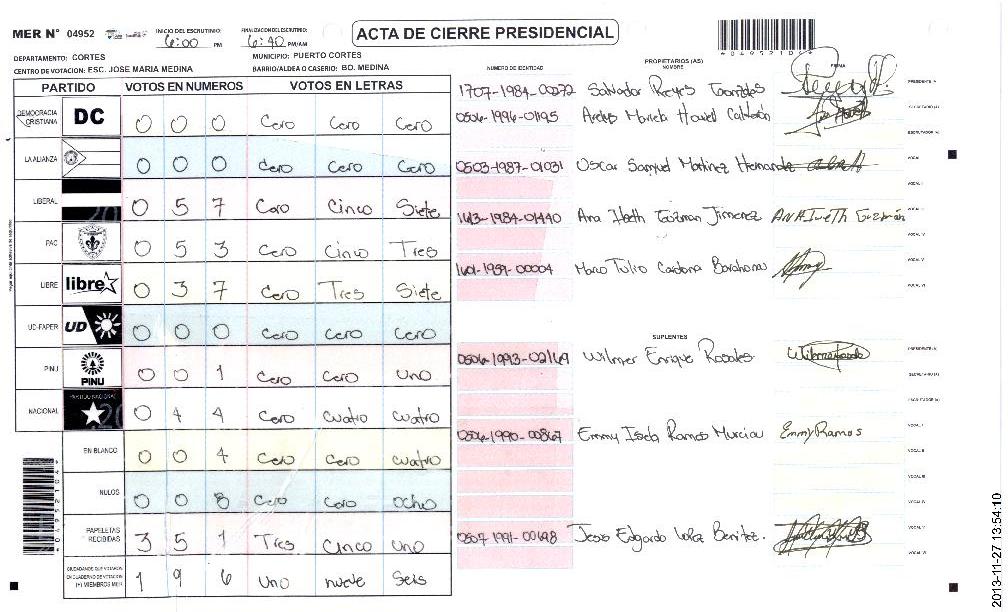 MER Nº 04952
INICIO DEL ESCRUTINIO: 6:00 PM
FINALIZACION DEL ESCRUTINIO: 6:40 PM/AM
ACTA DE CIERRE PRESIDENCIAL
DEPARTAMENTO: CORTES
MUNICIPIO: PUERTO CORTES
CENTRO DE VOTACION: ESC. JOSE MARIA MEDINA
BARRIO/ALDEA O CASERIO: BO. MEDINA
PARTIDO VOTOS EN NUMEROS VOTOS EN LETRAS
DEMOCRACIA CRISTIANA DC 0 0 0 Cero Cero Cero
LA ALIANZA 0 0 0 Cero Cero Cero
LIBERAL 0 5 7 Cero Cinco Siete
PAC 0 5 3 Cero Cinco Tres
LIBRE libre 0 3 7 Cero Tres Siete
UD-FAPER UD 0 0 0 Cero Cero Cero
PINU PINU 0 0 1 Cero Cero Uno
NACIONAL PARTIDO NACIONAL 0 4 4 Cero Cuatro Cuatro
EN BLANCO 0 0 4 Cero Cero Cuatro
NULOS 0 0 8 Cero Cero Ocho
PAPELETAS RECIBIDAS 3 5 1 Tres Cinco Uno
CIUDADANOS QUE VOTARON EN CUADERNO DE VOTACION (+) MIEMBROS MER 1 9 6 Uno nueve Seis
NUMERO DE IDENTIDAD
PROPIETARIOS (AS)
NOMBRE
FIRMA
1707-1984-00272 Salvador Reyes PRESIDENTE (A)
0506-1996-01195 SECRETARIO (A)
ESCRUTADOR (A)
0503-1987-01031 Oscar Samuel Martinez Hernande VOCAL I
VOCAL II
1613-1984-01440 Ana Guzman Jimenez VOCAL IV
VOCAL V
1601-1959-00004 Marco Tulio Cardona Barahona VOCAL VI
SUPLENTES
0506-1993-02169 Wilmer Enrique Rosales PRESIDENTE (A)
SECRETARIO (A)
ESCRUTADOR (A)
0506-1990-00867 Emmy Ramos Murcia Emmy Ramos VOCAL I
VOCAL II
VOCAL III
VOCAL IV
Jesus Edgardo Benitez. VOCAL V
VOCAL VI
2013-11-27 13:54:10